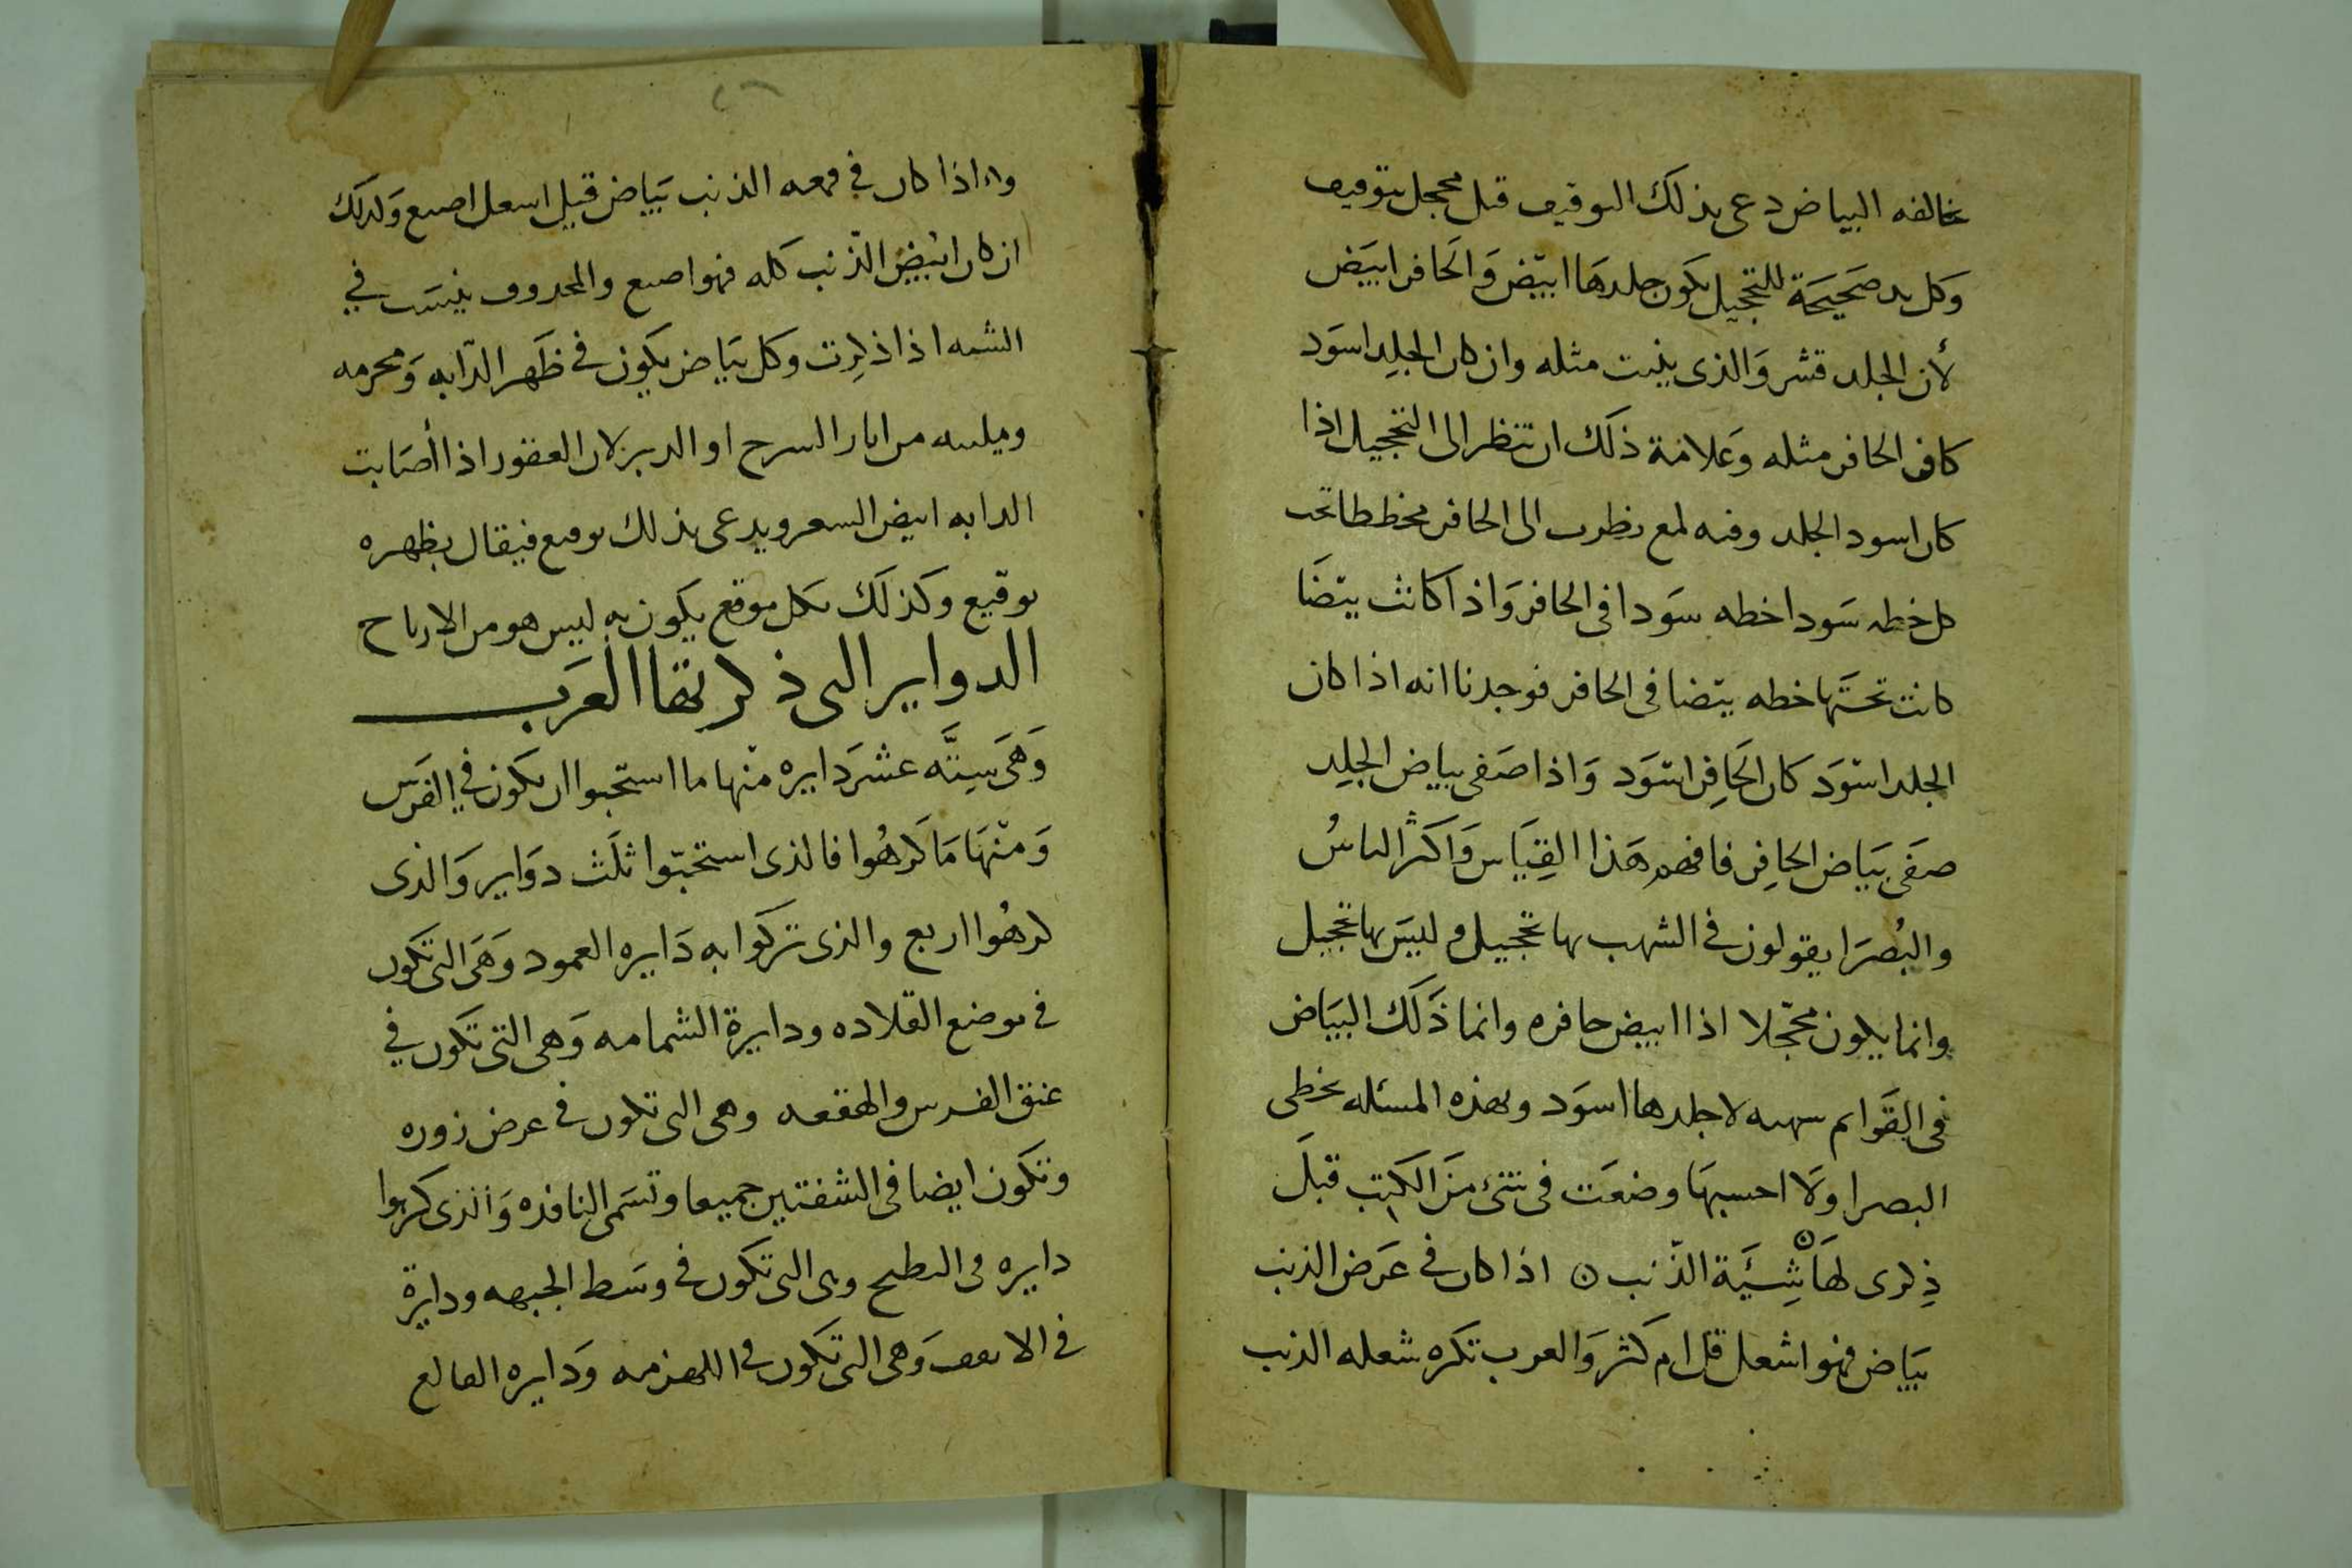 خالفه البياض دعى بذلك التوقيف قبل محجل بتوقيف
وكل يد صَحيحَة للتحجيل يكون جلدهَا ابيَض وَالحَافر ابيَض
لأن الجلد قشر وَالذى ينبت مثله وان كان الجلِد اسوَد
كان الحافر مثله وَعَلامَة ذلك ان تنظر الى التحجيل اذا
كان اسود الجلد وفيه لمع نظرت الى الحافر مخططا تحت
كل خطه سَودا خطه سَودا فى الحافر وَاذا كانت بيَضَا
كانت تحتَها خطه بيضا فى الحافر فوجدنا انه اذا كان
الجلد اسوَد كان الحَافِر اسوَد وَاذا صَفى بياض الجلِد
صفَى بيَاض الحافِر فافهم هَذا القِيَاس وَاكثر الناسُ
والبُصرَا يقولون فى الشهب بها تحجيل وليسَ بها تحجيل
وانما يكون محجّلا اذا ابيض حافره وانما ذَلك البيَاض
فى القَوايم شهبه لا جلدها اسوَد وبهذه المسئله يخطى
البصرا ولَا احسبهَا وضعَت فى شئ مِنَ الكتِب قبلَ
ذِكرى لهَا شِيَة الذّنب ن اذا كان فى عَرَض الذنب
بيَاض فهو اشعل قل ام كثر وَالعرب تكره شعله الذنب
واذا كان فى قمعه الذنب بيَاض قيل اشعل اصبع وَكذلك
ان كان ابيَض الذّنب كله فهو اصبع والمحذوف ينسَب فى
الشيه اذا ذكِرت وكل بيَاض يكون فى ظَهر الدّابه وَمحزمه
وملببه من اثار السرج او الدبر لان العقور اذا أصَابت
الدابه ابيض الشعر ويدعى بذلك توقيع فيقال بظهره
توقيع وكذلك بكل موقع يكون به ليس هو من الارياح
الدواير التى ذكرتها العَرَب
وَهىَ سِتَّه عشرَ دَايره منْها ما استحبوا ان يكون فى الفرَس
وَمنْهَا مَا كَرهُوا فالذى استحبّوا ثلَث دوَاير وَالذى
كرهُوا اربع والذى تركوا به دَايره العمود وَهىَ التى تكون
فى موضع القلاده ودايرة الشمامه وَهى التى تكون فى
عنق الفرس والهقعه وهى التى تكون فى عرض زوره
وتكون ايضا فى الشفتين جميعا وتسَمى النافده وَالذى كرهوا
دايره فى النطيح وهى التى تكون فى وسَط الجبهه ودايرة
فى الا وَهى التى تكون فى اللهزمه وَدايره القالع